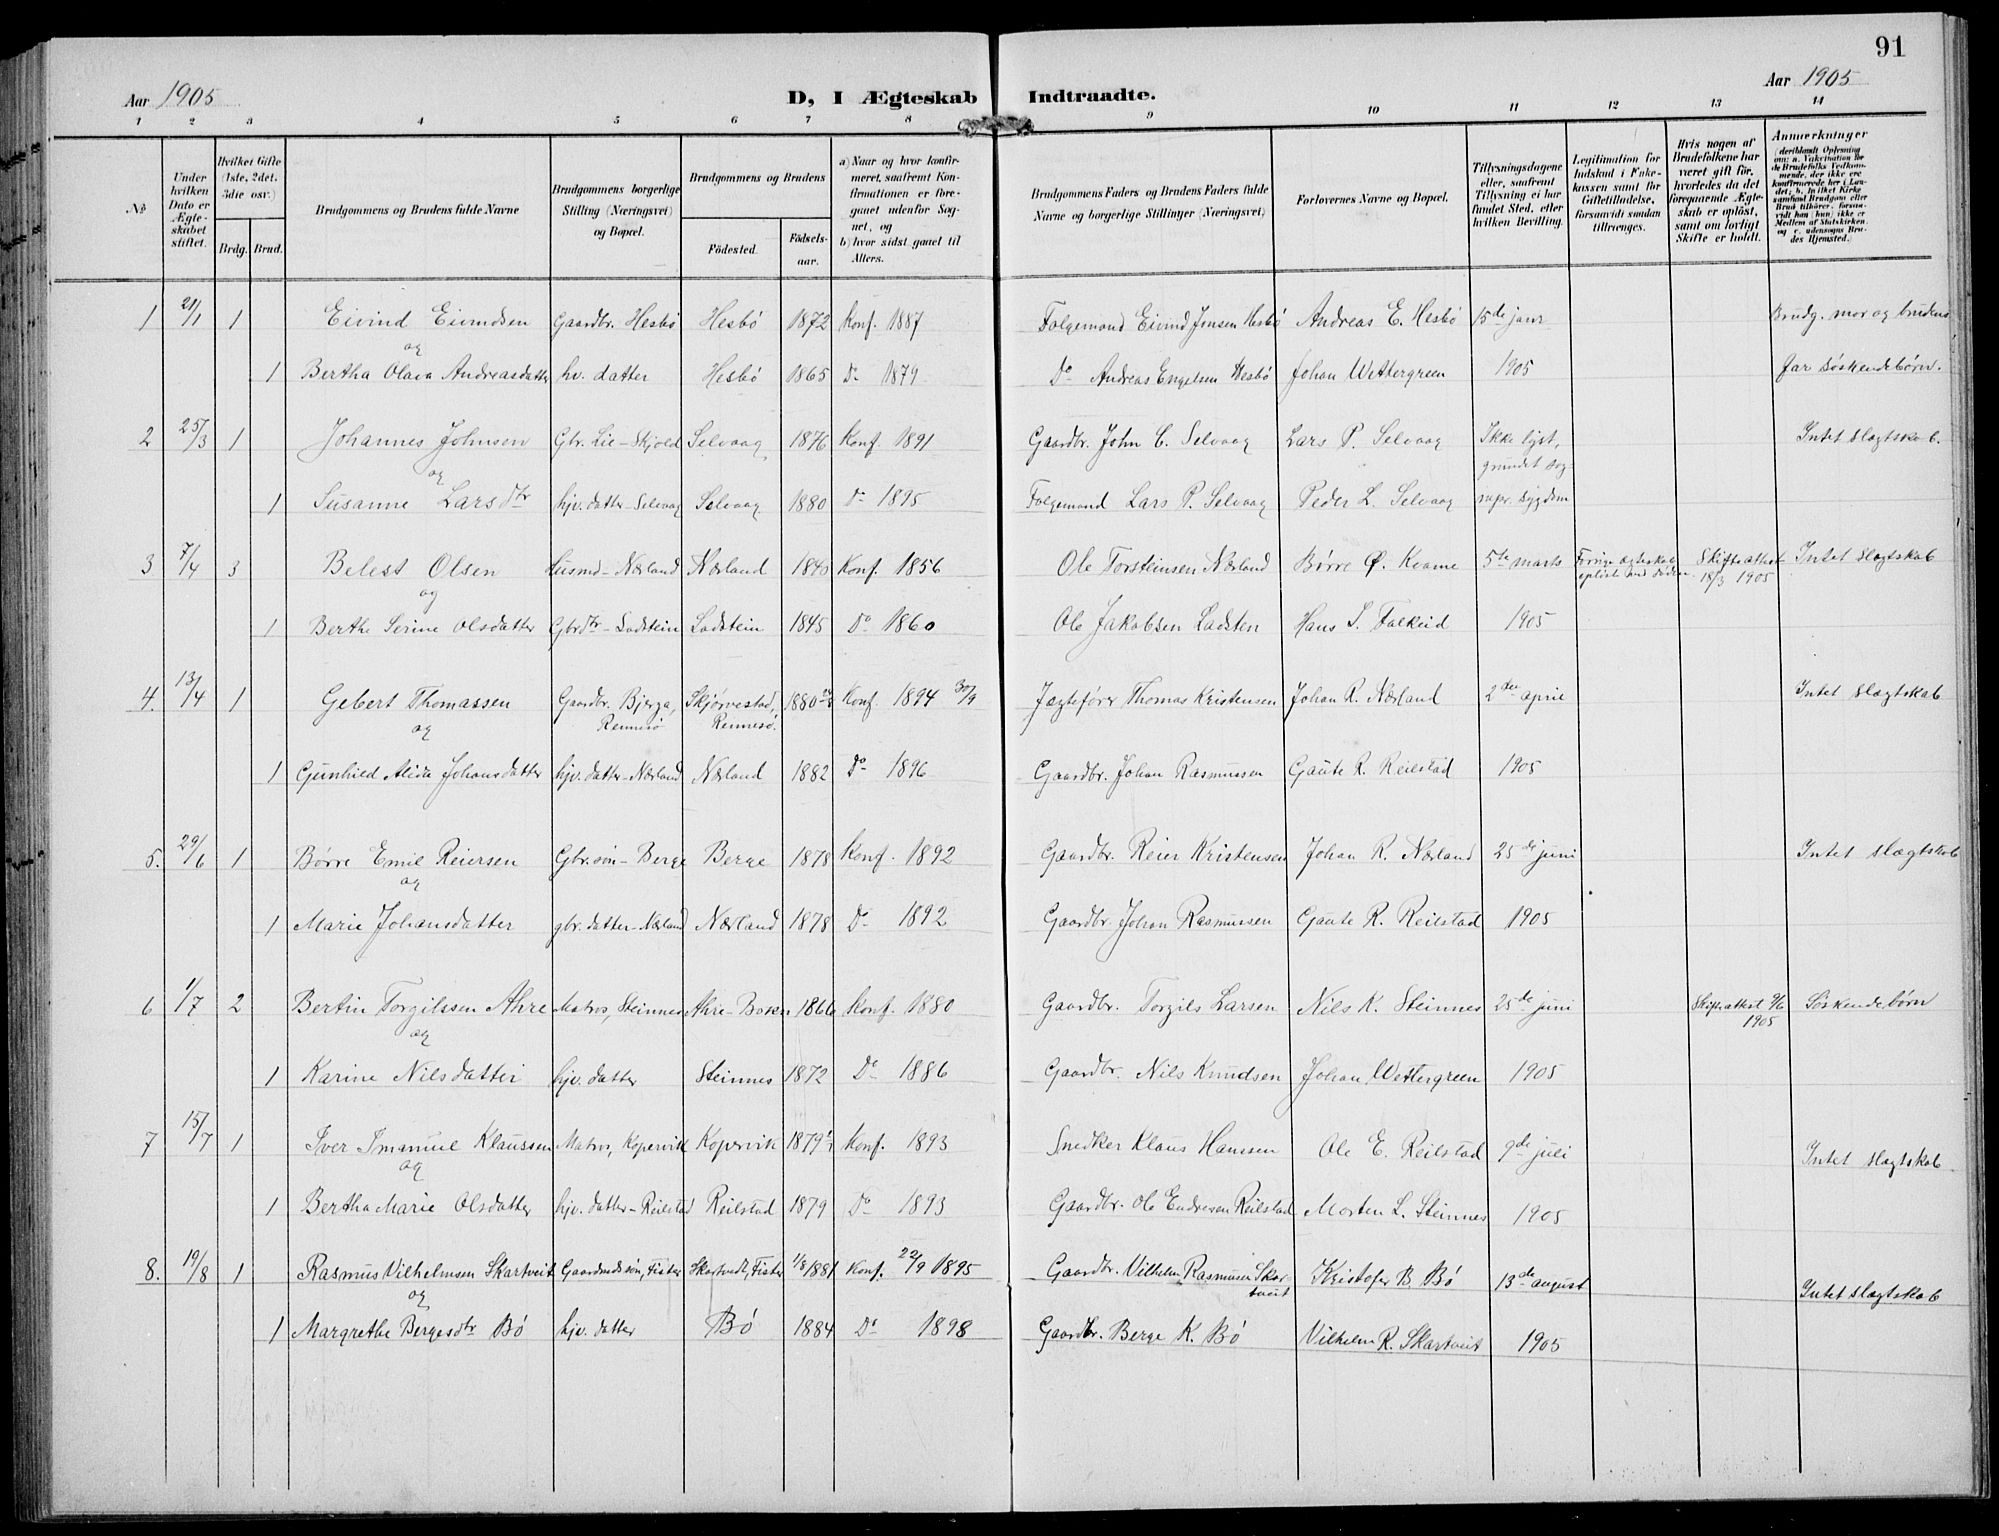 91
Aar 1905 D, I Ægteskab Indtraadte. Aar 1905
1 2 3 4 5 6 7 8 9 10 11 12 13 14
№
Under hvilken Dato er Ægteskabet stiftet.
Hvilket Gifte (1ste, 2det, 3die osv.)
Brdg. Brud.
Brudgommens og Brudens fulde Navne
Brudgommens borgerlige Stilling (Næringsvei) og Bopæl.
Brudgommens og Brudens
Födested. Födsels-aar.
a) Naar og hvor konfirmeret, saafremt Konfirmationen er foregaaet udenfor Sognet, og
b) hvor sidst gaaet til Alters.
Brudgommens Faders og Brudens Faders fulde Navne og borgerlige Stillinger (Næringsvei)
Forlovernes Navne og Bopæl.
Tillysningsdagene eller, saafremt Tillysning ei har fundet Sted, efter hvilken Bevilling.
Legitimation for Indskud i Enkekassen samt for Giftetilladelse, forsaavidt saadan tiltrænges.
Hvis nogen af Brudefolkene har været gift før, hvorledes da det foregaaende Ægteskab er opløst, samt om lovligt Skifte er holdt.
Anmærkninger (deriblandt Oplysning om: a. Vakcination for de Brudefolks Vedkommende, der ikke ere konfirmerede her i Landet; b. hvilket Kirkesamfund Brudgom eller Brud tilhører, forsaavidt han (hun) ikke er Medlem af Statskirken, og c. udensogns Brudes Hjemsted.)
1 21/1 1 Eivind Eivindsen Gaardbr. Hesbø Hesbø 1872 Konf. 1887 Folgemand Eivind Jonsen Hesbø Andreas E. Hesbø 15de janr Brudg. mor og brudens
og
1 Bertha Olava Andreasdatter hv. datter Hesbø 1865 Do 1879 Do Andreas Engelsen Hesbø Johan Wettergreen 1905 far søskendebørn.
2 25/3 1 Johannes Johnsen Gbr. Lie - Skjold Selvaag 1876 Konf. 1891 Gaardbr. John C. Selvaag Lars P. Selvaag Ikke lyst, Intet slægtskab.
og grundet sog-
1 Susanne Larsdtr hjv. datter - Selvaag Selvaag 1880 Do 1895 Folgemand Lars P. Selvaag Peder L. Selvaag nepr. sygdom
3 7/4 3 Belest Olsen Husmd - Nærland Nærland 1840 Konf. 1856 Ole Torsteinsen Nærland Børre Ø. Kvame 5te marts Forrige ægteskab Skifteattest Intet slægtskab
opløst ved døden. 18/3 1905
og
1 Berthe Serine Olsdatter Gbrdtr - Ladstein Ladstein 1845 Do 1860 Ole Jakobsen Ladsten Hans S. Falkeid 1905
4. 13/4 1 Gebert Thomassen Gaardbr. Bjerga, Skjørvestad, 1880 Konf. 1894 30/9 Jægtefører Thomas Kristensen Johan R. Nærland 2den april Intet slægtskab
og Rennesø Rennesø.
1 Gunhild Alida Johansdatter hjv. datter - Nærland Nærland 1882 Do 1896 Gaardbr. Johan Rasmussen Gaute R. Reilstad 1905
5. 29/6 1 Børre Emil Reiersen Gbr. søn - Berge Berge 1878 Konf. 1892 Gaardbr. Reier Kristensen Johan R. Nærland 25de juni Intet slægtskab
og
1 Marie Johansdatter gbr. datter - Nærland Nærland 1878 Do 1892 Gaardbr. Johan Rasmussen Gaute R. Reilstad 1905
6 1/7 2 Bertin Torgilssen Ahre Matros, Steinnes Ahre - Boken 1866 Konf. 1880 Gaardbr. Torgils Larsen Nils K. Steinnes 25de juni Skifteattest 9/6 Søskendebørn
og 1905
1 Karine Nilsdatter hjv. datter Steinnes 1872 Do 1886 Gaardbr. Nils Knudsen Johan Wettergreen 1905
7 15/7 1 Iver Imanuel Klaussen Matros, Kopervik Kopervik 1879 Konf. 1893 Snedker Klaus Hanssen Ole E. Reilstad 9de juli Intet slægtskab
og
1 Bertha Marie Olsdatter hjv. datter - Reilstad Reilstad 1879 Do 1893 Gaardbr. Ole Endresen Reilstad Morten L. Steinnes 1905
8. 19/8 1 Rasmus Vilhelmsen Skartveit Gaardmdssøn, Fister Skartvedt, Fister 1/8 1881 Konf. 22/9 1895 Gaardbr. Vilhelm Rasmussen Skar- Kristofer B. Bø 13de august Intet slægtskab
og tveit
1 Margrethe Bergesdtr Bø hjv. datter Bø 1884 Do 1898 Gaardbr. Berge K. Bø Vilhelm R. Skartveit 1905